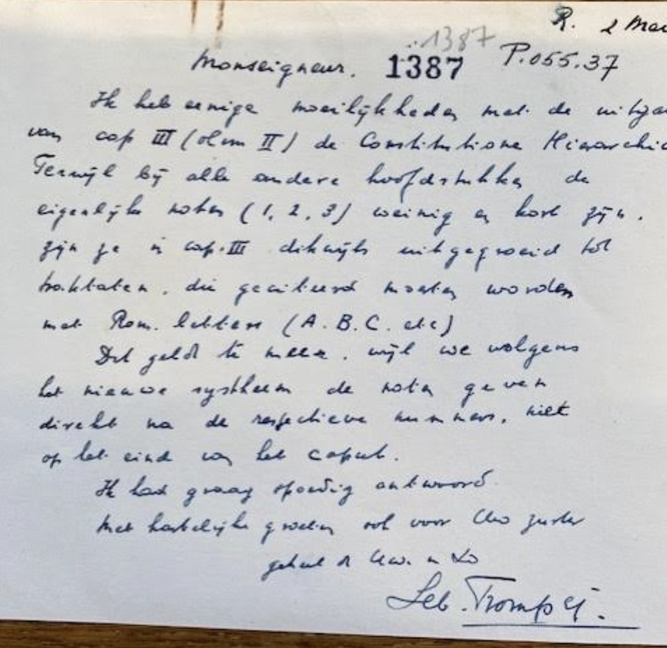 R. 2 Mei
1387
Monseigneur. 1387 P.055.37
Ik heb eenige moeilijkheden met de uitga
van cap III (olim II) de Constitutione Hierarchic
Terwijl bij alle andere hoofdstukken de
eigenlijke noten (1, 2, 3) weinig en kort zijn.
zijn ze in cap. III dikwijls uitgegroeid tot
traktaten, die geciteerd moeten worden
met Rom. letters (A. B. C. etc)
Dit geldt te meer, wijl we volgens
het nieuwe systheem de noten geven
direkt na de respectieve nummers, niet
op het eind van het caput.
Ik had graag spoedig antwoord.
Met hartelijke groeten ook voor Uw zuster
geheel de Uwe in Xo
Seb. Tromp sj.